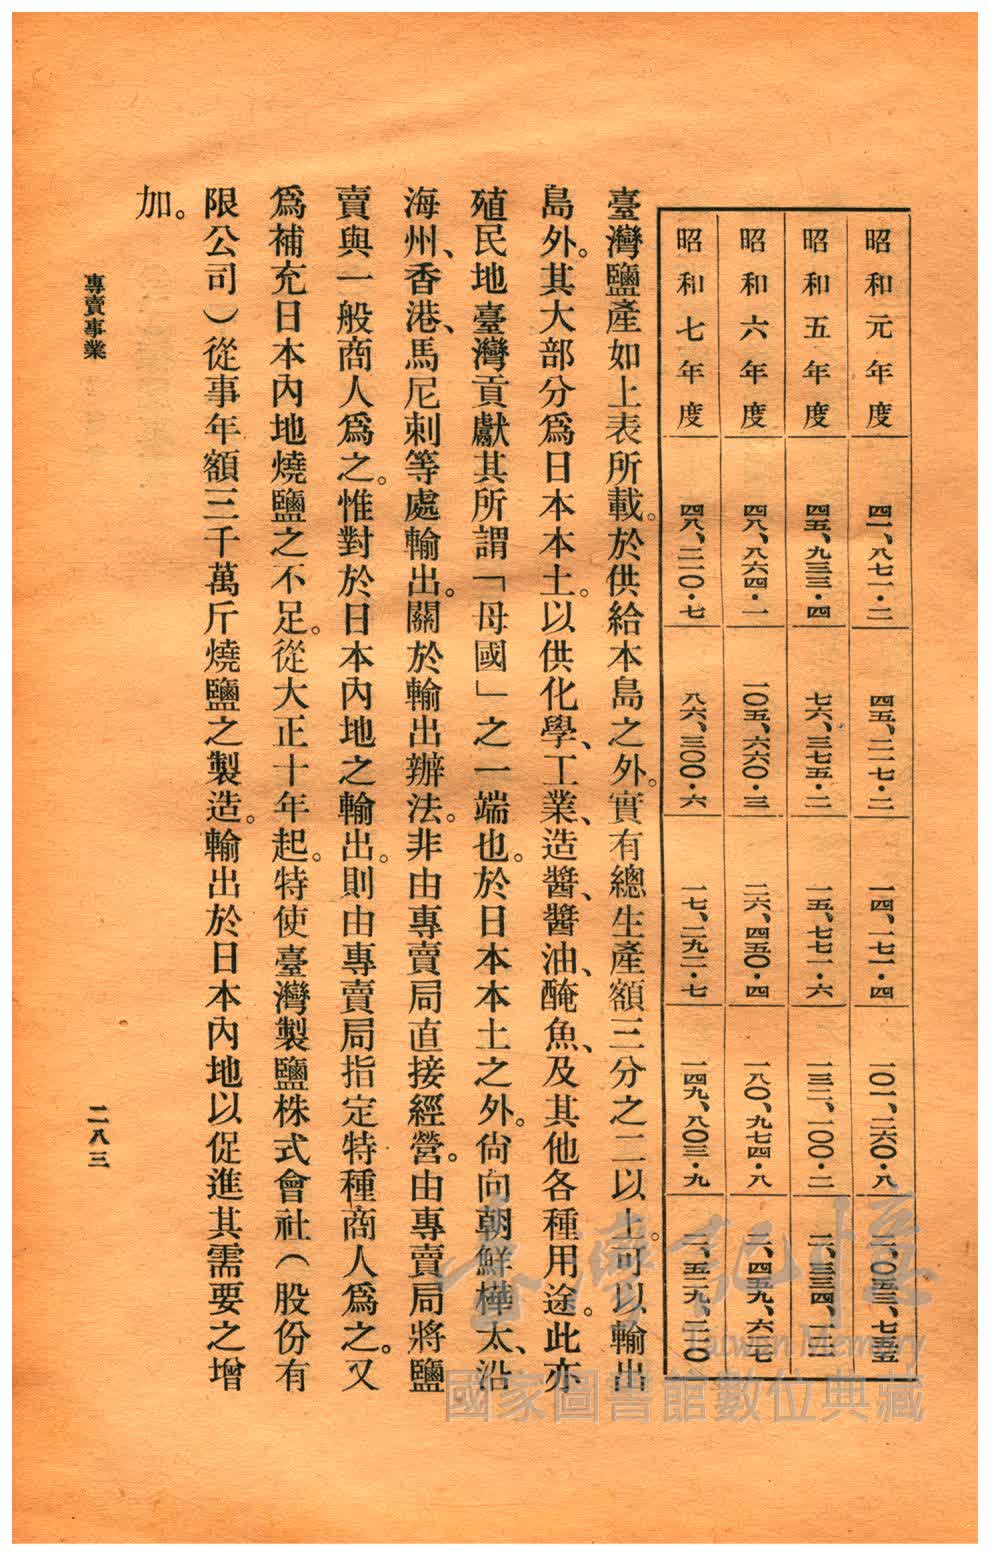 昭和元年度 四一、八七一・二 四五、二一七・二 一四、一七一・四 一〇一、二六〇・八 二、〇五三、七五五
昭和五年度 四五、九三三・四 七六、三七五・二 一五、七七一・六 一三二、一〇〇・二
昭和六年度 四八、八六四・一 一〇五、六六〇・三 二六、四五〇・四 一八〇、九七四・八 二、四五九、六二七
昭和七年度 四八、二一〇・七 八六、三〇〇・六 一七、二九二・七 一四九、八〇三・九
臺灣鹽產如上表所載。於供給本島之外。實有總生產額三分之二以上。可以輸出
島外。其大部分爲日本本土。以供化學、工業、造醬、醬油、醃魚、及其他各種用途。此亦
殖民地臺灣貢獻其所謂「母國」之一端也。於日本本土之外。尙向朝鮮樺太、沿
海州、香港、馬尼剌等處輸出。關於輸出辦法。非由專賣局直接經營。由專賣局將鹽
賣與一般商人爲之。惟對於日本內地之輸出。則由專賣局指定特種商人爲之。又
爲補充日本內地燒鹽之不足。從大正十年起。特使臺灣製鹽株式會社（股份有
限公司）從事年額三千萬斤燒鹽之製造。輸出於日本內地以促進其需要之增
加。
專賣事業
二八三
臺灣記憶
Taiwan Memory
國家圖書館數位典藏